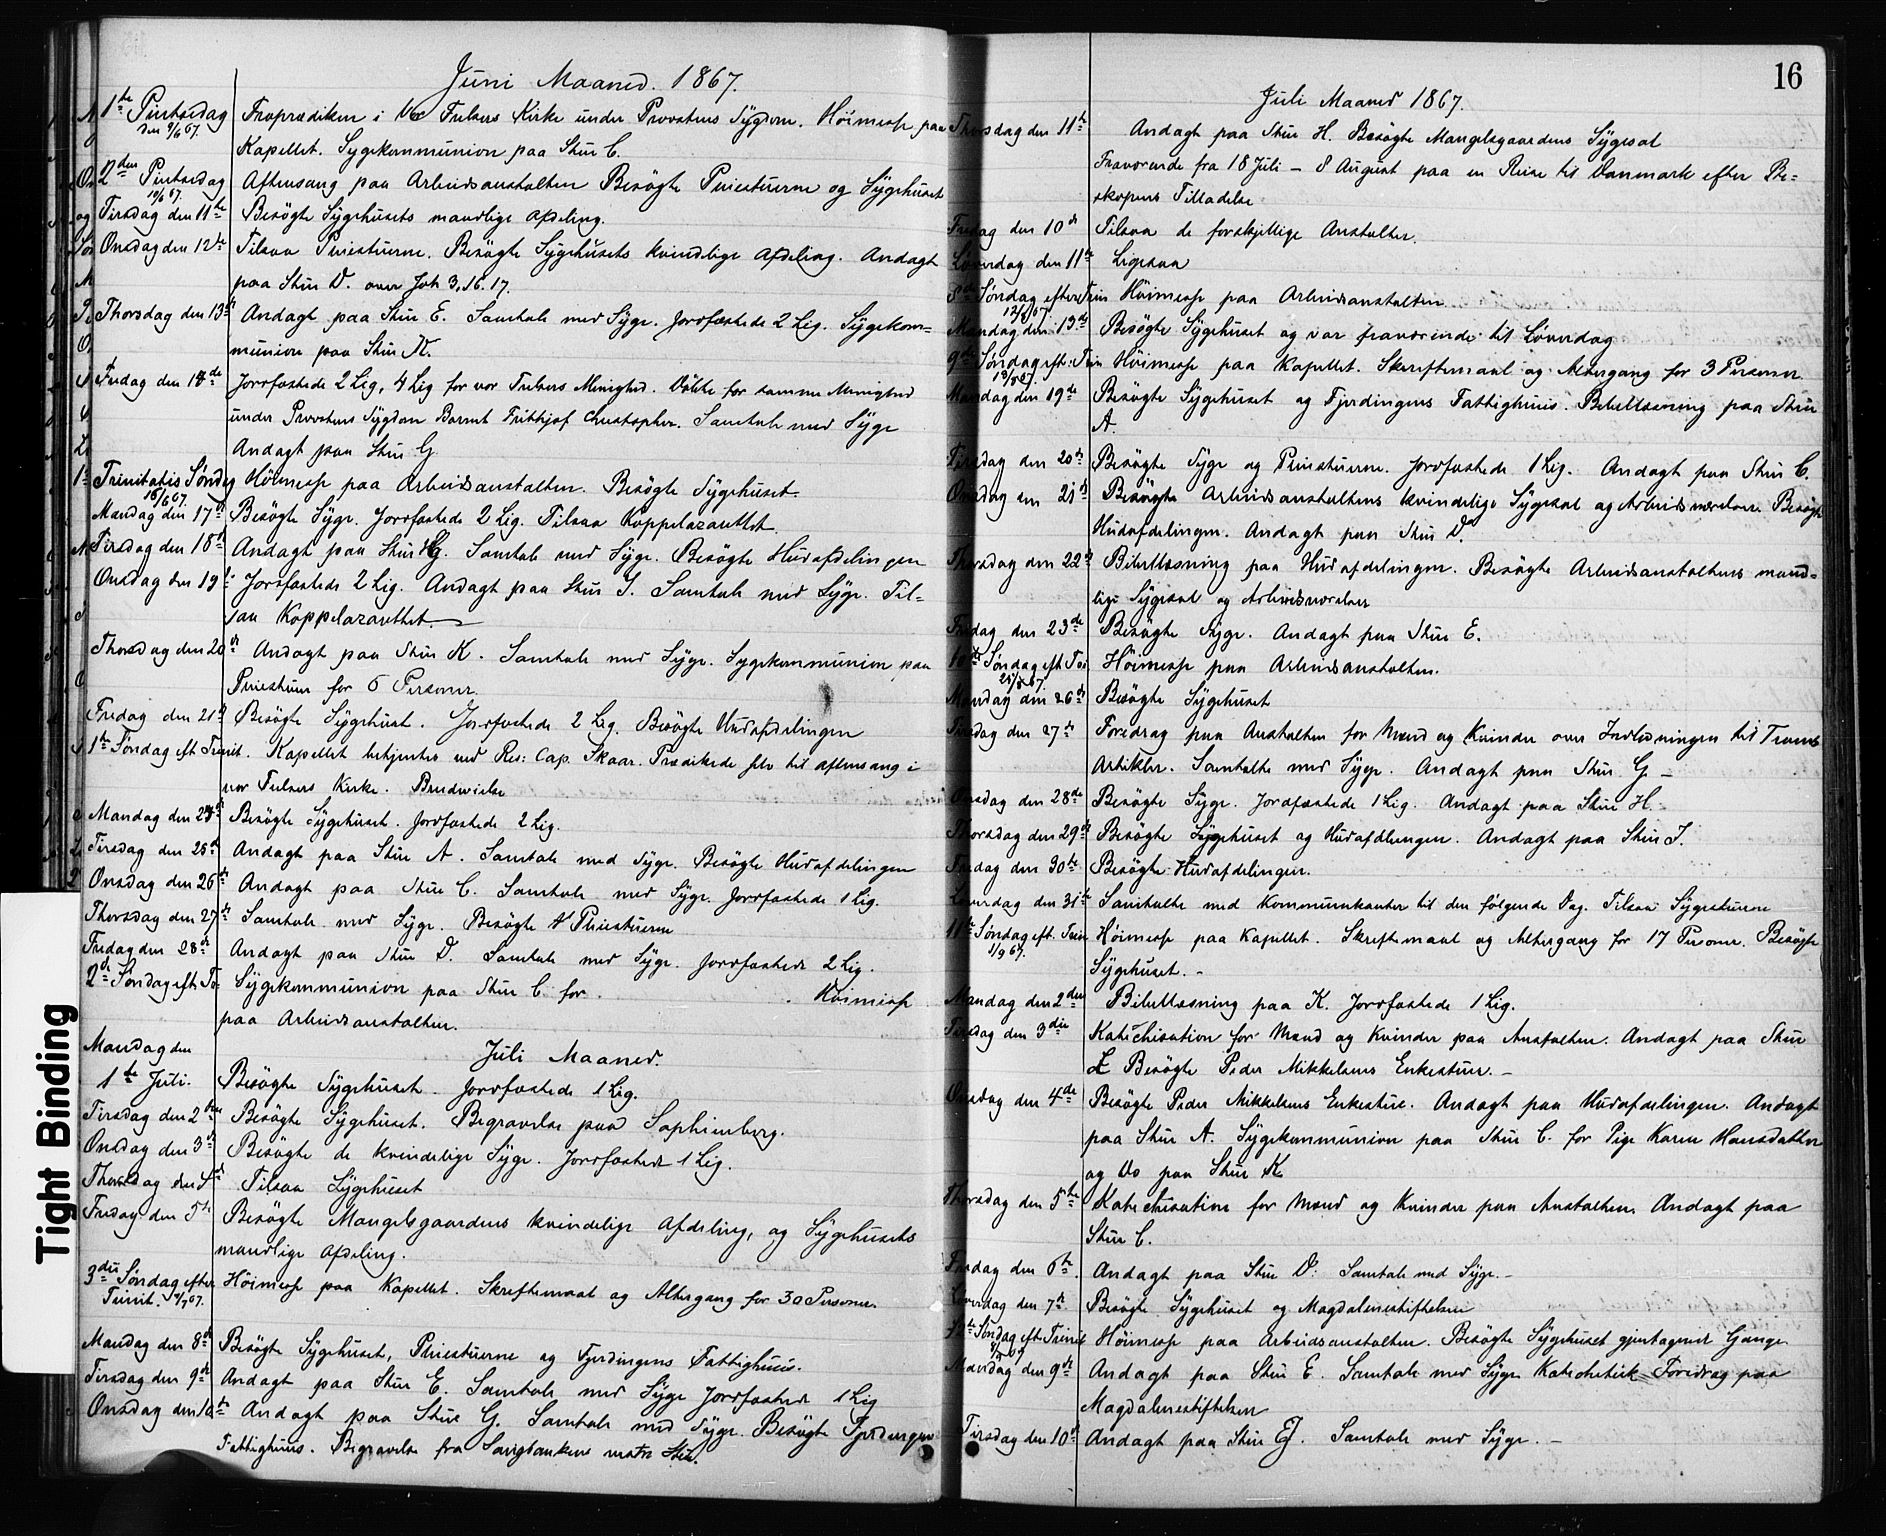 Juni Maaned. 1867.
1ste Pintsedag Froprædiken i Vor Frelsers Kirke under Provstens Sygdom. Høimesse paa
den 9/6 67. Kapellet. Sygekommunion paa Stue C.
2den Pintsedag Aftensang paa Arbeidsanstalten Besøgte Pleiestuerne og Sygehuset
10/6 67.
Tirsdag den 11te Besøgte Sygehusets mandlige Afdeling.
Onsdag den 12te Tilsaa Pleiestuerne. Besøgte Sygehusets kvindelige Afdeling. Andagt
paa Stue D. over Joh 3, 16. 17.
Thorsdag den 13de Andagt paa Stue E. Samtale med Syge. Jordfæstede 2 Lig. Sygekom=
munion paa Stue
Fredag den 14de Jordfæstede 2 Lig, 4 Lig for vor Frelsers Menighed. Døbte for samme Menighed
under Provstens Sygdom Barnet Frithjof Christopher. Samtale med Syge
Andagt paa Stue G
Trinitatis Søndag Høimesse paa Arbeidsanstalten. Besøgte Sygehuset.
16/6 67.
Mandag den 17de Besøgte Syge. Jordfæstede 2 Lig. Tilsaa Koppelazarettet.
Tirsdag den 18de Andagt paa Stue G. Samtale med Syge. Besøgte Hudafdelingen
Onsdag den 19de Jordfæstede 2 Lig. Andagt paa Stue I. Samtale med Syge. Til=
saa Koppelazarettet.
Thorsdag den 20de Andagt paa Stue K. Samtale med Syge. Sygekommunion paa
Pleiestuen for 6 Personer.
Fredag den 21de Besøgte Sygehuset. Jordfæstede 2 Lig. Besøgte Hudafdelingen
1ste Søndag eft Trinit. Kapellet betjentes ved Res: Cap. Skaar. Prædikede selv til aftensang i
vor Frelsers Kirke. Brudevielse
Mandag den 24de Besøgte Sygehuset. Jordfæstede 2 Lig.
Tirsdag den 25de Andagt paa Stue A. Samtale med Syge. Besøgte Hudafdelingen
Onsdag den 26de Andagt paa Stue C. Samtale med Syge. Jordfæstede 1 Lig.
Thorsdag den 27de Samtale med Syge. Besøgte Pleiestuerne
Fredag den 28de Andagt paa Stue D. Samtale med Syge. Jordfæstede 2 Lig.
2den Søndag eft. Tr. Sygekommunion paa Stue C for . Høimesse
paa Arbeidsanstalten.
Mandag den Juli Maaned.
1ste Juli. Besøgte Sygehuset. Jordfæstede 1 Lig.
Tirsdag den 2den Besøgte Sygehuset. Begravelse paa Sophienberg.
Onsdag den 3de Besøgte de kvindelige Syge. Jordfæstede 1 Lig.
Thorsdag den 4de Tilsaa Sygehuset
Fredag den 5te Besøgte Mangelsgaardens kvindelige Afdeling, og Sygehusets
mandlige Afdeling.
3die Søndag efter Høimesse paa Kapellet. Skriftemaal og Altergang for 30 Personer.
Trinit. 7/7 67.
Mandag den 8de Besøgte Sygehuset, Pleiestuerne og Fjerdingens Fattighuus.
Tirsdag den 9de Andagt paa Stue E. Samtale med Syge Jordfæstede 1 Lig
Onsdag den 10de Andagt paa Stue G. Samtale med Syge. Besøgte Fjerdingens
Fattighuus. Begravelse fra
Tight Binding
16
Juli Maaned 1867.
Thorsdag den 11te Andagt paa Stue H. Besøgte Mangelsgaardens Sygesal
Fraværende fra 18 Juli – 8 August paa en Reise til Danmark efter Bi=
skopens Tilladelse
Fredag den 10de Tilsaa de forskjellige Anstalter.
Løverdag den 11te Ligesaa
8de Søndag efter Trin Høimesse paa Arbeidsanstalten
Mandag den 13de Besøgte Sygehuset og var fraværende til Løverdag
9de Søndag eft. Trin Høimesse paa Kapellet. Skriftemaal og Altergang for 3 Personer
Mandag den 19de Besøgte Sygehuset og Fjerdingens Fattighuus. Bibellæsning paa Stue
A.
Tirsdag den 20de Besøgte Syge og Pleiestuerne. Jordfæstede 1 Lig. Andagt paa Stue C.
Onsdag den 21de Besøgte Arbeidsanstaltens kvindelige Sygesal og Arbeidsværelser. Besøgte
Hudafdelingen. Andagt paa Stue D.
Thorsdag den 22de Bibellæsning paa Hudafdelingen. Besøgte Arbeidsanstaltens mand=
lige Sygesal og Arbeidsværelser
Fredag den 23de Besøgte Syge. Andagt paa Stue E.
10de Søndag eft Tri Høimesse paa Arbeidsanstalten.
25/8 67
Mandag den 26de Besøgte Sygehuset
Tirsdag den 27de Foredrag paa Anstalten for Mænd og Kvinder over Indledningen til Troens
Artikler. Samtalte med Syge. Andagt paa Stue G –
Onsdag den 28de Besøgte Syge. Jordfæstede 1 Lig. Andagt paa Stue H.
Thorsdag den 29de Besøgte Sygehuset og Hudafdelingen. Andagt paa Stue I.
Fredag den 30te Besøgte Hudafdelingen.
Løverdag den 31te Samtalte med Kommunikanter til den følgende Dag. Tilsaa Sygestuerne
11te Søndag eft. Trin Høimesse paa Kapellet. Skriftemaal og Altergang for 17 Personer. Besøgte
1/9 67. Sygehuset. –
Mandag den 2den Bibellæsning paa K. Jordfæstede 1 Lig.
Tirsdag den 3die Katechisation for Mænd og Kvinder paa Anstalten. Andagt paa Stue
Besøgte Peder Mikkelsens Enkestuer. –
Onsdag den 4de Besøgte Peder Mikkelsens Enkestue. Andagt paa Hudafdelingen. Andagt
paa Stue A. Sygekommunion paa Stue C. for Pige Karen Hansdatter
og Do paa Stue K.
Thorsdag den 5te Katechisation for Mænd og Kvinder paa Anstalten. Andagt paa
Stue C.
Fredag den 6te. Andagt paa Stue D. Samtale med Syge. –
Løverdag den 7de. Besøgte Sygehuset og Magdalenestiftelsen
12te Søndag eft. Trinit Høimesse paa Arbeidsanstalten. Besøgte Sygehuset gjentagende Gange
Mandag den 9de Andagt paa Stue E. Samtale med Syge. Katechetisk Foredrag paa
Magdalenestiftelsen
Tirsdag den 10de Andagt paa Stue G. Samtale med Syge. –